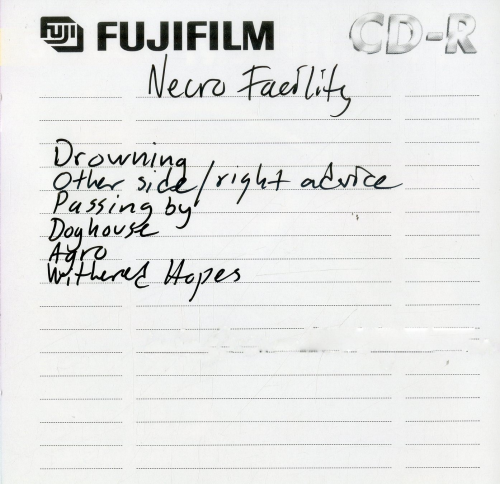 FUJI FUJIFILM CD-R
Necro Facility
Drowning
Other side/right advice
Passing by
Doghouse
Agro
Withered Hopes